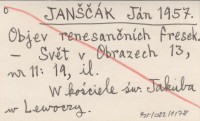 JANŠČÁK Ján 1957.
Objev renesančních fresek.
— Svět v Obrazech 13,
nr 11: 19, il.
W kościele św. Jakuba
w Lewoczy.